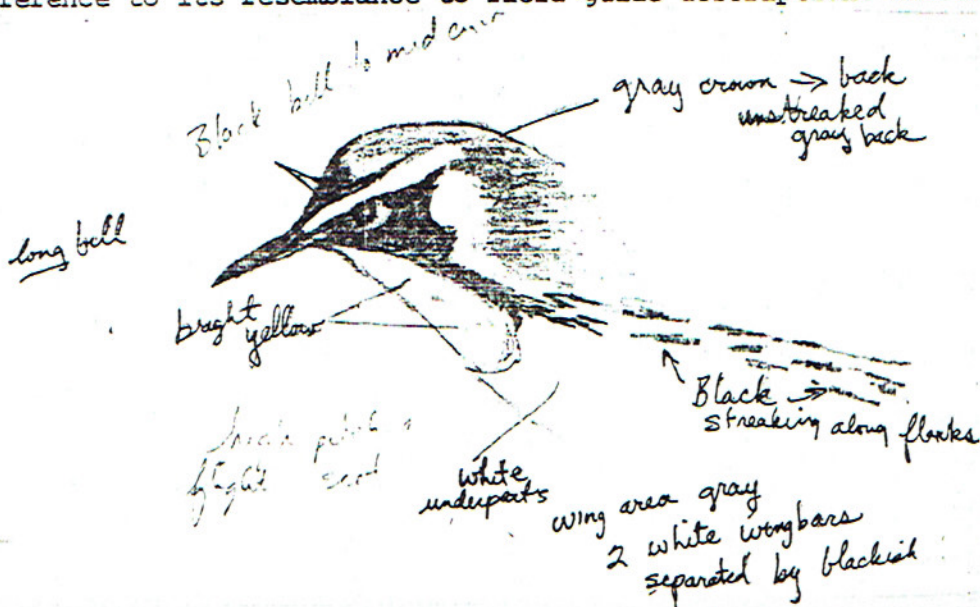 resemblance to field guide
Black bill to mid
gray crown → back
unstreaked
gray back
long bill
bright
yellow
Black →
streaking along flanks
high
flight
white
underparts
wing area gray
2 white wingbars
separated by blackish